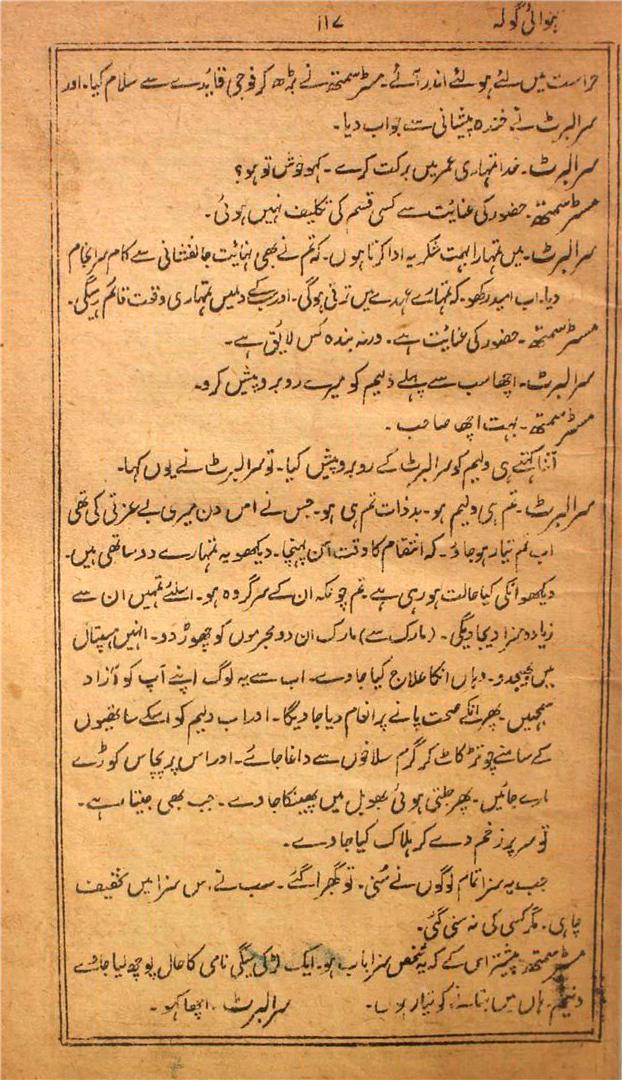 ہوائی گولہ ۱۱۷
حراست میں لئے ہوئے اندر آئے۔ مسٹر سمتھ نے بڑھ کر فوجی قاعدے سے سلام کیا۔ اور
سر البرٹ نے خندہ پیشانی سے جواب دیا۔
سر البرٹ۔ خدا تمہاری عمر میں برکت کرے۔ کہو خوش تو ہو؟
مسٹر سمتھ۔ حضور کی عنایت سے کسی قسم کی تکلیف نہیں ہوئی۔
سر البرٹ۔ میں تمہارا بہت شکریہ ادا کرتا ہوں۔ کہ تم نے بھی نہایت جانفشانی سے کام سرانجام
دیا۔ اب امید رکھو۔ کہ تمہارے عہدے میں ترقی ہوگی۔ اور سب کے دلمیں تمہاری وقت قائم رہیگی۔
مسٹر سمتھ۔ حضور کی عنایت ہے۔ ورنہ بندہ کس لایق ہے۔
سر البرٹ۔ اچھا سب سے پہلے ولیم کو میرے روبرو پیش کرو۔
مسٹر سمتھ۔ بہت اچھا صاحب۔
اتنا کہتے ہی ولیم کو سر البرٹ کے روبرو پیش کیا۔ تو سر البرٹ نے یوں کہا۔
سر البرٹ۔ تم ہی ولیم ہو۔ بدذات تم ہی ہو۔ جس نے اس دن میری بے عزتی کی تھی
اب تم تیار ہو جاؤ۔ کہ انتقام کا وقت آن پہنچا۔ دیکھو یہ تمہارے دو ساتھی ہیں۔
دیکھو انکی کیا حالت ہو رہی ہے۔ تم چونکہ ان کے سرگروہ ہو۔ اسلئے تمہیں ان سے
زیادہ سزا دیجاویگی۔ (مارک سے) مارک ان دو مجرموں کو چھوڑ دو۔ انہیں ہسپتال
میں بھیجدو۔ وہاں انکا علاج کیا جاوے۔ اب سے یہ لوگ اپنے آپ کو آزاد
سمجھیں۔ پھر انکے صحت پانے پر انعام دیا جاویگا۔ اور اب ولیم کو اسکے ساتھیوں
کے سامنے چوتڑ کاٹ کر گرم سلاخوں سے داغا جائے۔ اور اس پر پچاس کوڑے
مارے جائیں۔ پھر جلتی ہوئی بھوبل میں پھینکا جاوے۔ جب بھی جیتا رہے۔
تو سر پر زخم دے کر ہلاک کیا جاوے۔
جب یہ سزا تمام لوگوں نے سُنی۔ تو گھبرا گئے۔ سب نے اس سزا میں تخفیف
چاہی۔ مگر کسی کی نہ سنی گئی۔
مسٹر سمتھ۔ پیشتر اس کے کہ یہ شخص سزایاب ہو۔ ایک لڑکی میگی نامی کا حال پوچھ لیا جاوے
ولیم۔ ہاں میں بتانے کو تیار ہوں۔ سر البرٹ۔ اچھا کہو۔